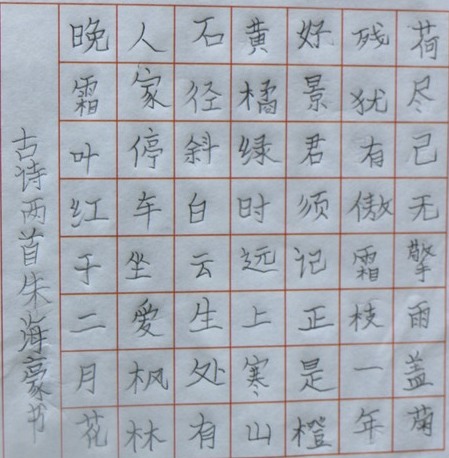 荷尽已无擎雨盖菊
残犹有傲霜枝一年
好景君须记正是橙
黄橘绿时远上寒山
石径斜白云生处有
人家停车坐爱枫林
晚霜叶红于二月花
古诗两首朱海蒙书